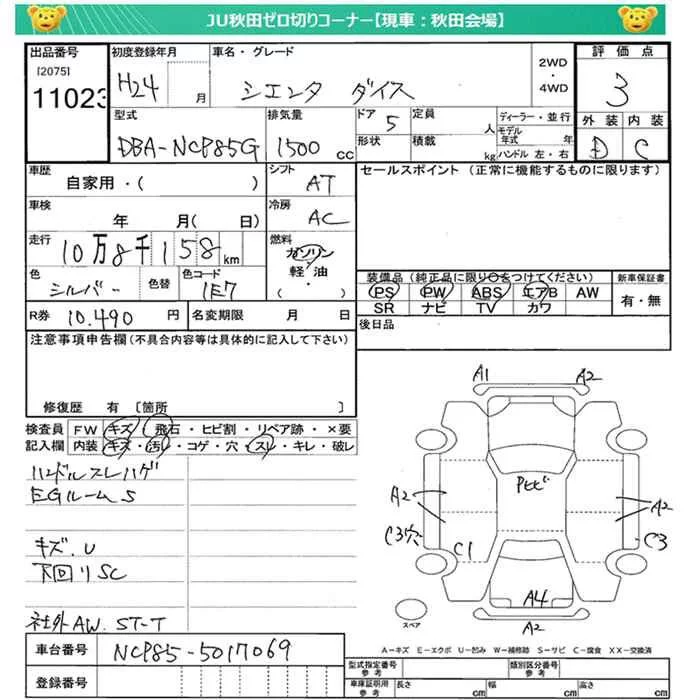 JU秋田ゼロ切りコーナー【現車：秋田会場】
出品番号
[2075]
11023
初度登録年月
H24 月
車名・グレード
シエンタ ダイス
2WD
・
4WD
評価点
3
外装 内装
D C
型式
DBA-NCP85G
排気量
1500 cc
ドア 5
形状
定員 人
積載 kg
ディーラー・並行
モデル年式 年
ハンドル 左・右
車歴
自家用・( )
シフト
AT
セールスポイント (正常に機能するものに限ります)
車検
年 月( 日)
冷房
AC
走行
10万8千158km
燃料
ガソリン
軽・油
・
( )
色
シルバー
色替
色コード
1E7
装備品 (純正品に限り○をつけてください)
PS PW ABS エアB AW
SR ナビ TV カワ
新車保証書
有・無
R券 10.490 円
名変期限 月 日
後日品
注意事項申告欄 (不具合内容等は具体的に記入して下さい)
修復歴 有 〔箇所 〕
検査員
記入欄
FW キズ・飛石・ヒビ割・リペア跡・×要
内装 キズ・汚レ・コゲ・穴・スレ・キレ・破レ
ハンドルスレハゲ
EGルームS
キズ.U
下回りSC
社外AW. ST-T
A1 A2
Pヒビ
A2 A2
C3穴 C1 C3
A4
A2
スペア
A－キズ E－エクボ U－凹み W－補修跡 S－サビ C－腐食 XX－交換済
車台番号
NCP85-5017069
登録番号
型式指定番号
参考
類別区分番号
参考
車庫証明用
参考
長さ cm 幅 cm 高さ cm